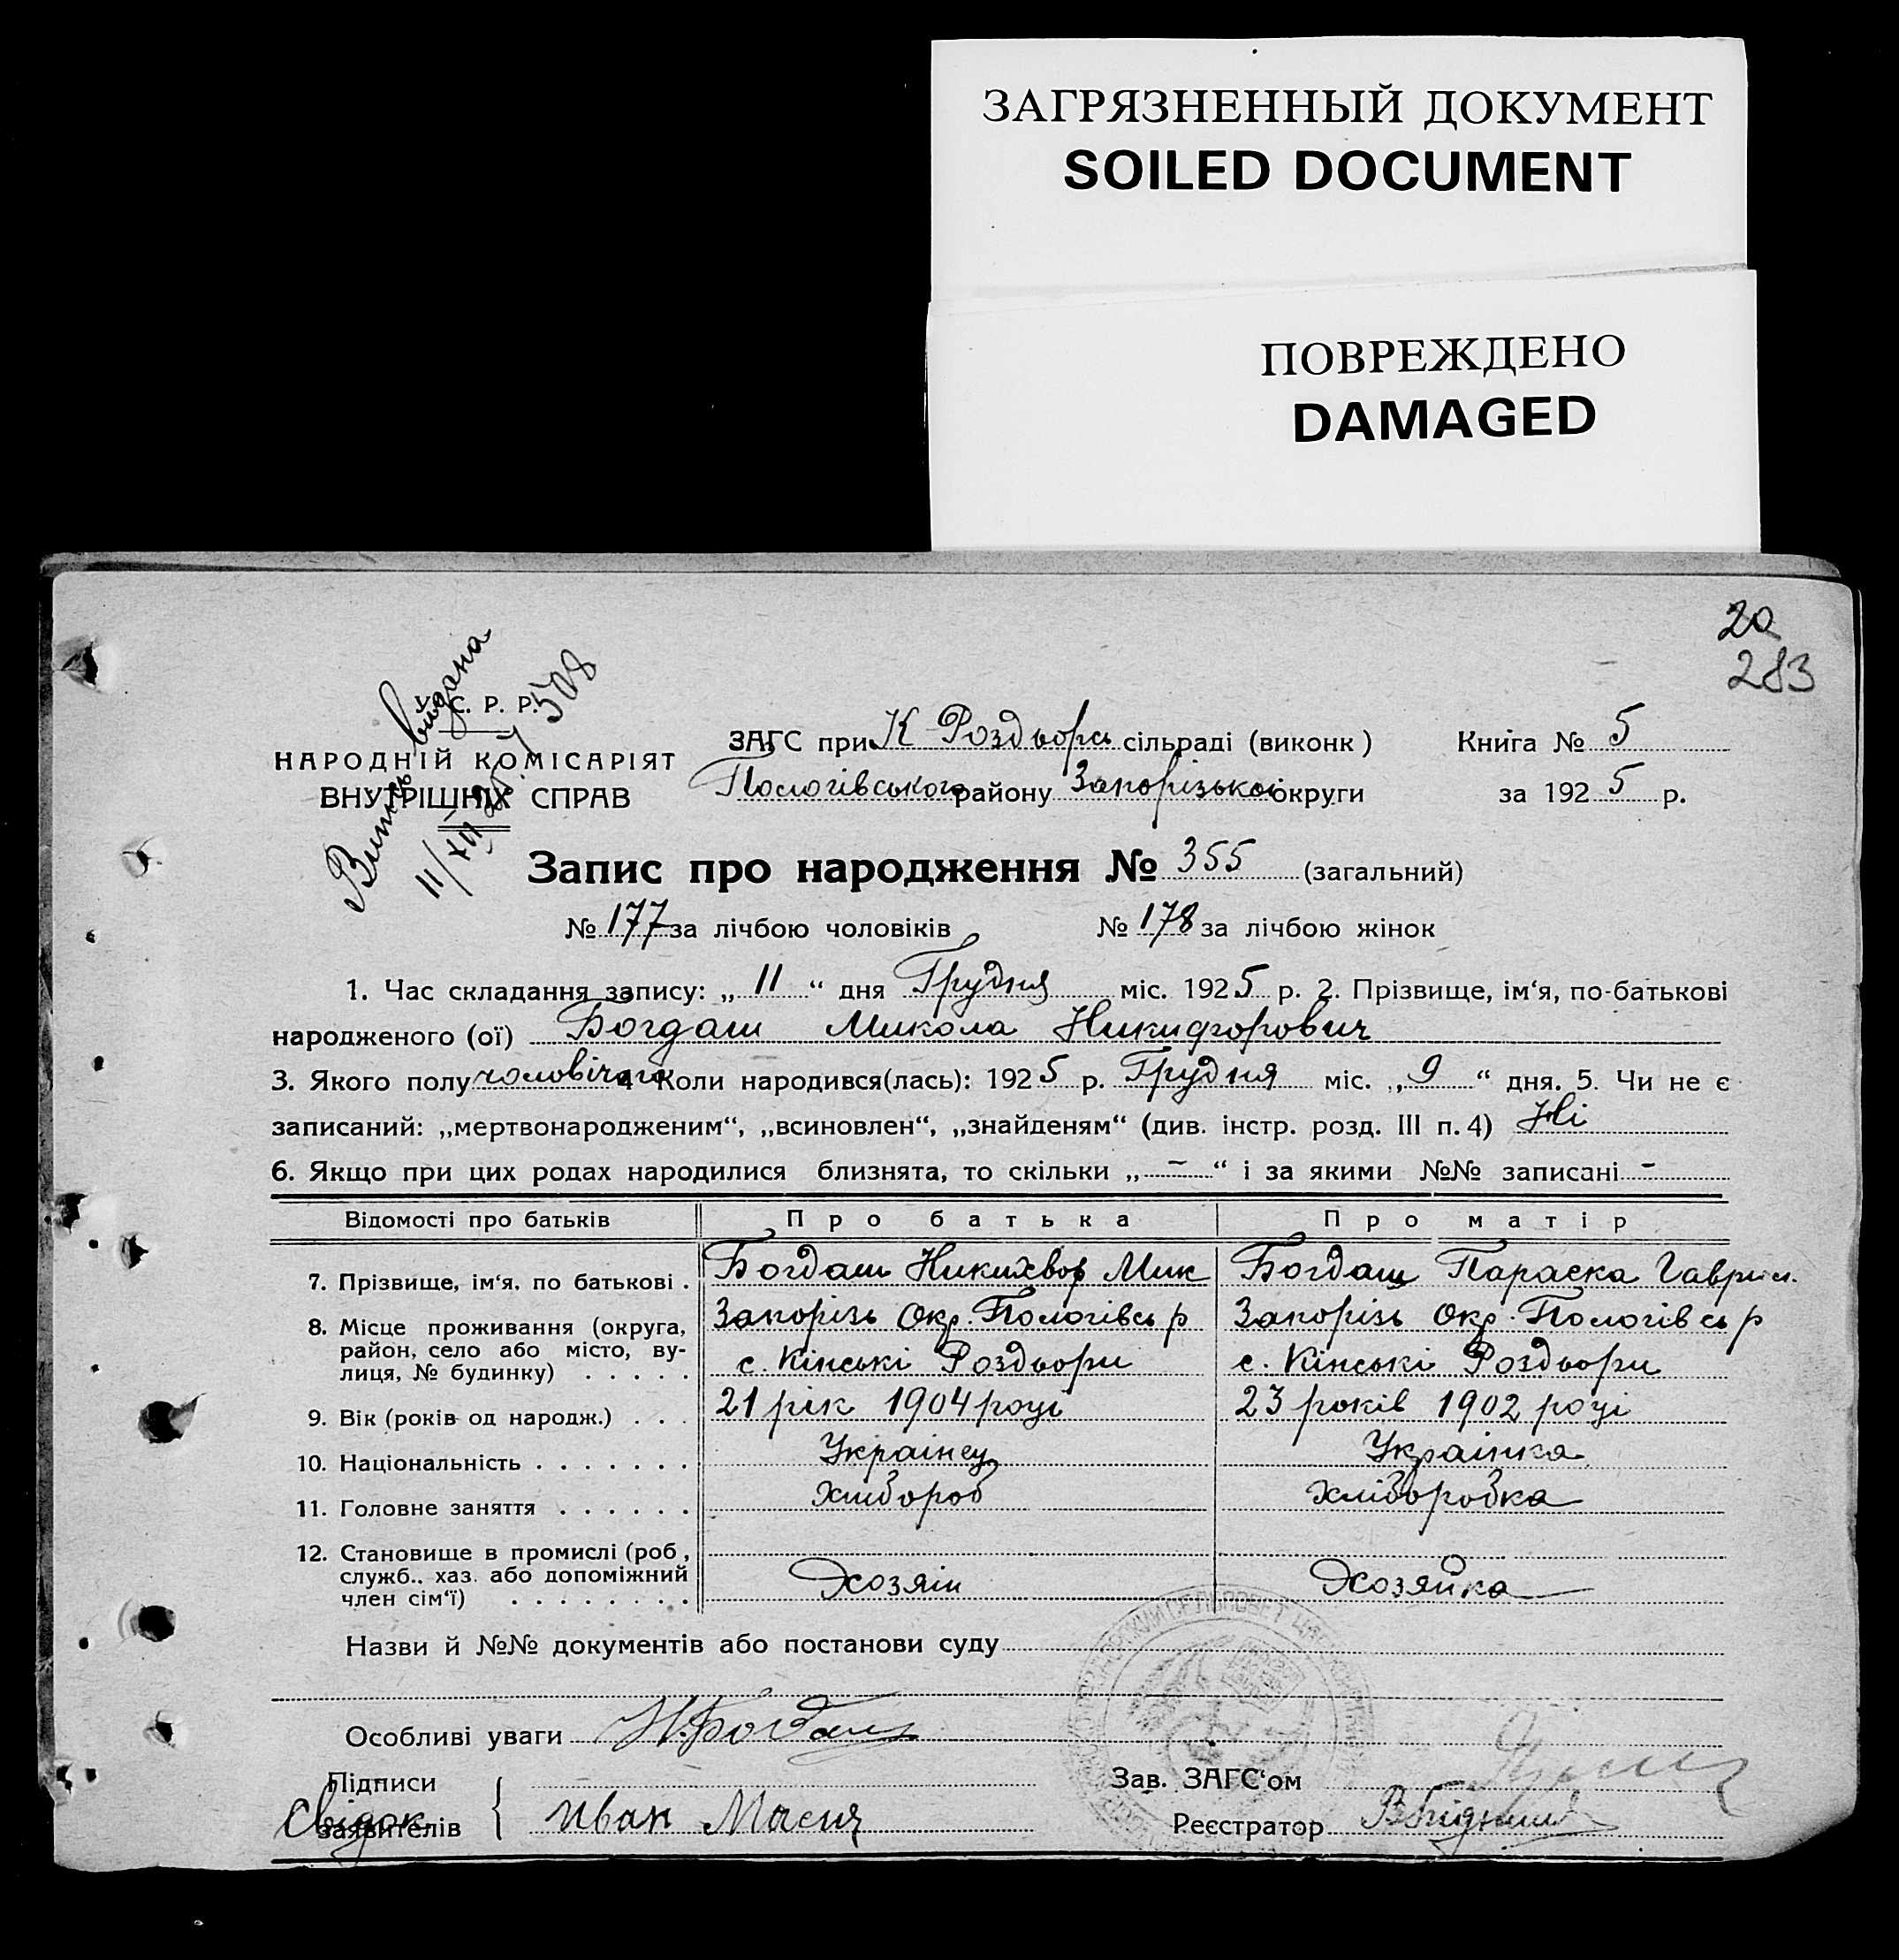 ЗАГРЯЗНЕННЫЙ ДОКУМЕНТ
SOILED DOCUMENT
ПОВРЕЖДЕНО
DAMAGED
20
283
Випись видана
11/XII 25 508
У. С. Р. Р.
НАРОДНІЙ КОМІСАРІЯТ
ВНУТРІШНІХ СПРАВ
ЗАГС при К-Роздорсь сільраді (виконк) Книга № 5
Пологівського району Запорізької округи за 1925 р.
Запис про народження № 355 (загальний)
№ 177 за лічбою чоловіків № 178 за лічбою жінок
1. Час складання запису: „ 11 “ дня Грудня міс. 1925 р. 2. Прізвище, ім‘я, по-батькові
народженого (ої) Богдаш Микола Никифорович
3. Якого полу чоловічого 4 Коли народився(лась): 1925 р. Грудня міс. „ 9 “ дня. 5. Чи не є
записаний: „мертвонародженим“, „всиновлен“, „знайденям“ (див. інстр. розд. III п. 4) Ні
6. Якщо при цих родах народилися близнята, то скільки „ – “ і за якими №№ записані –
Відомості про батьків Про батька Про матір
7. Прізвище, ім‘я, по батькові . Богдаш Никихвор Мик Богдаш Параска Гаврил.
8. Місце проживання (округа, район, село або місто, вулиця, № будинку) . . . . . Запорізь Окр. Пологівсь р Запорізь Окр. Пологівсь р
с. Кінські Роздори с. Кінські Роздори
9. Вік (років од народж.) . . . 21 рік 1904 році 23 років 1902 році
10. Національність . . . . . . . Українец Українка
11. Головне заняття . . . . . . Хлібороб Хліборобка
12. Становище в промислі (роб, служб.. хаз. або допоміжний член сім‘ї) . . . . . . . . Хозяін Хозяйка
Назви й №№ документів або постанови суду
Особливі уваги Н. Богдаш
Підписи
Свідок
заявителів Иван Масич
Зав. ЗАГС‘ом
Реєстратор